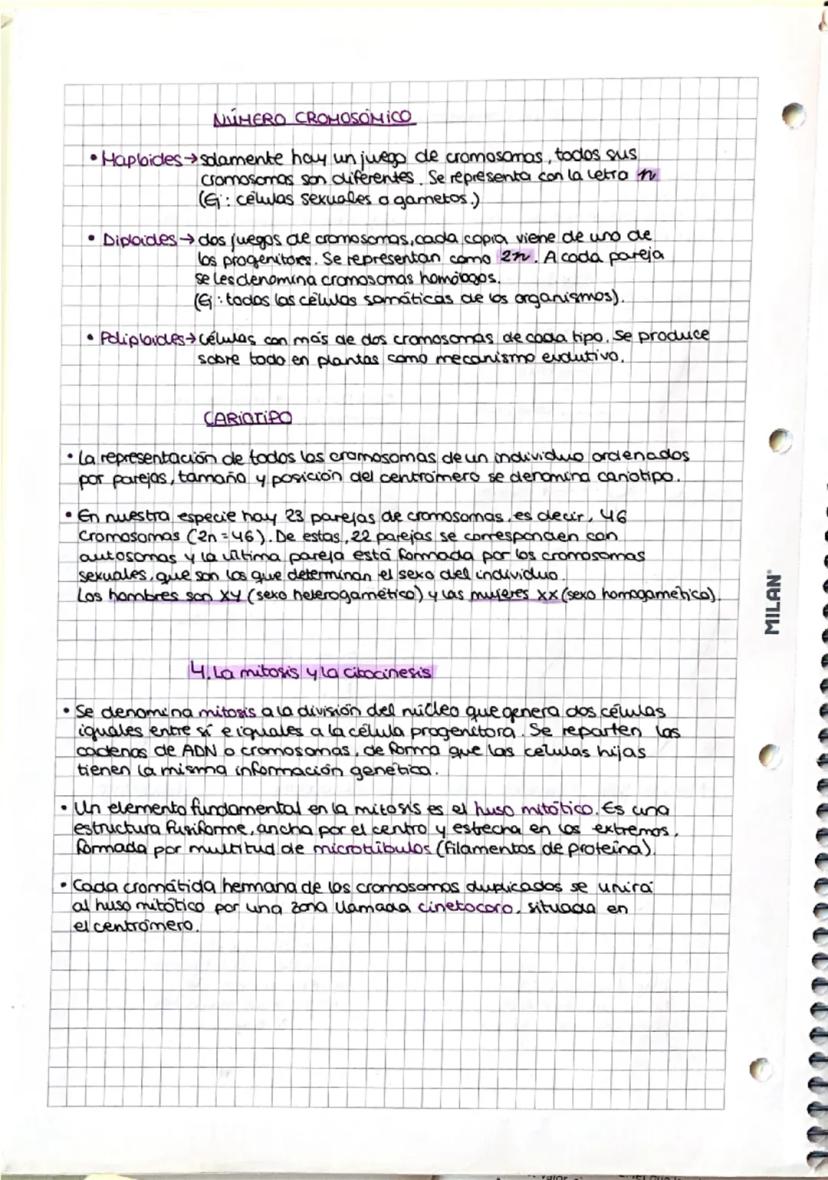 NÚMERO CROMOSÓMICO
• Haploides → solamente hay un juego de cromosomas, todos sus
cromosomas son diferentes. Se representa con la letra n
(Ej: células sexuales o gametos.)
• Diploides → dos juegos de cromosomas, cada copia viene de uno de
los progenitores. Se representan como 2n. A cada pareja
se les denomina cromosomas homólogos.
(Ej: todas las células somáticas de los organismos).
• Poliploides → células con más de dos cromosomas de cada tipo. Se produce
sobre todo en plantas como mecanismo evolutivo.
CARIOTIPO
• La representación de todos los cromosomas de un individuo ordenados
por parejas, tamaño y posición del centrómero se denomina cariotipo.
• En nuestra especie hay 23 parejas de cromosomas, es decir, 46
cromosomas (2n = 46). De estas, 22 parejas se corresponden con
autosomas y la última pareja está formada por los cromosomas
sexuales, que son los que determinan el sexo del individuo.
Los hombres son XY (sexo heterogamético) y las mujeres XX (sexo homogamético).
4. La mitosis y la citocinesis
• Se denomina mitosis a la división del núcleo que genera dos células
iguales entre sí e iguales a la célula progenitora. Se reparten las
cadenas de ADN o cromosomas, de forma que las células hijas
tienen la misma información genética.
• Un elemento fundamental en la mitosis es el huso mitótico. Es una
estructura fusiforme, ancha por el centro y estrecha en los extremos,
formada por multitud de microtúbulos (filamentos de proteína).
• Cada cromátida hermana de los cromosomas duplicados se unirá
al huso mitótico por una zona llamada cinetocoro, situada en
el centrómero.
MILAN